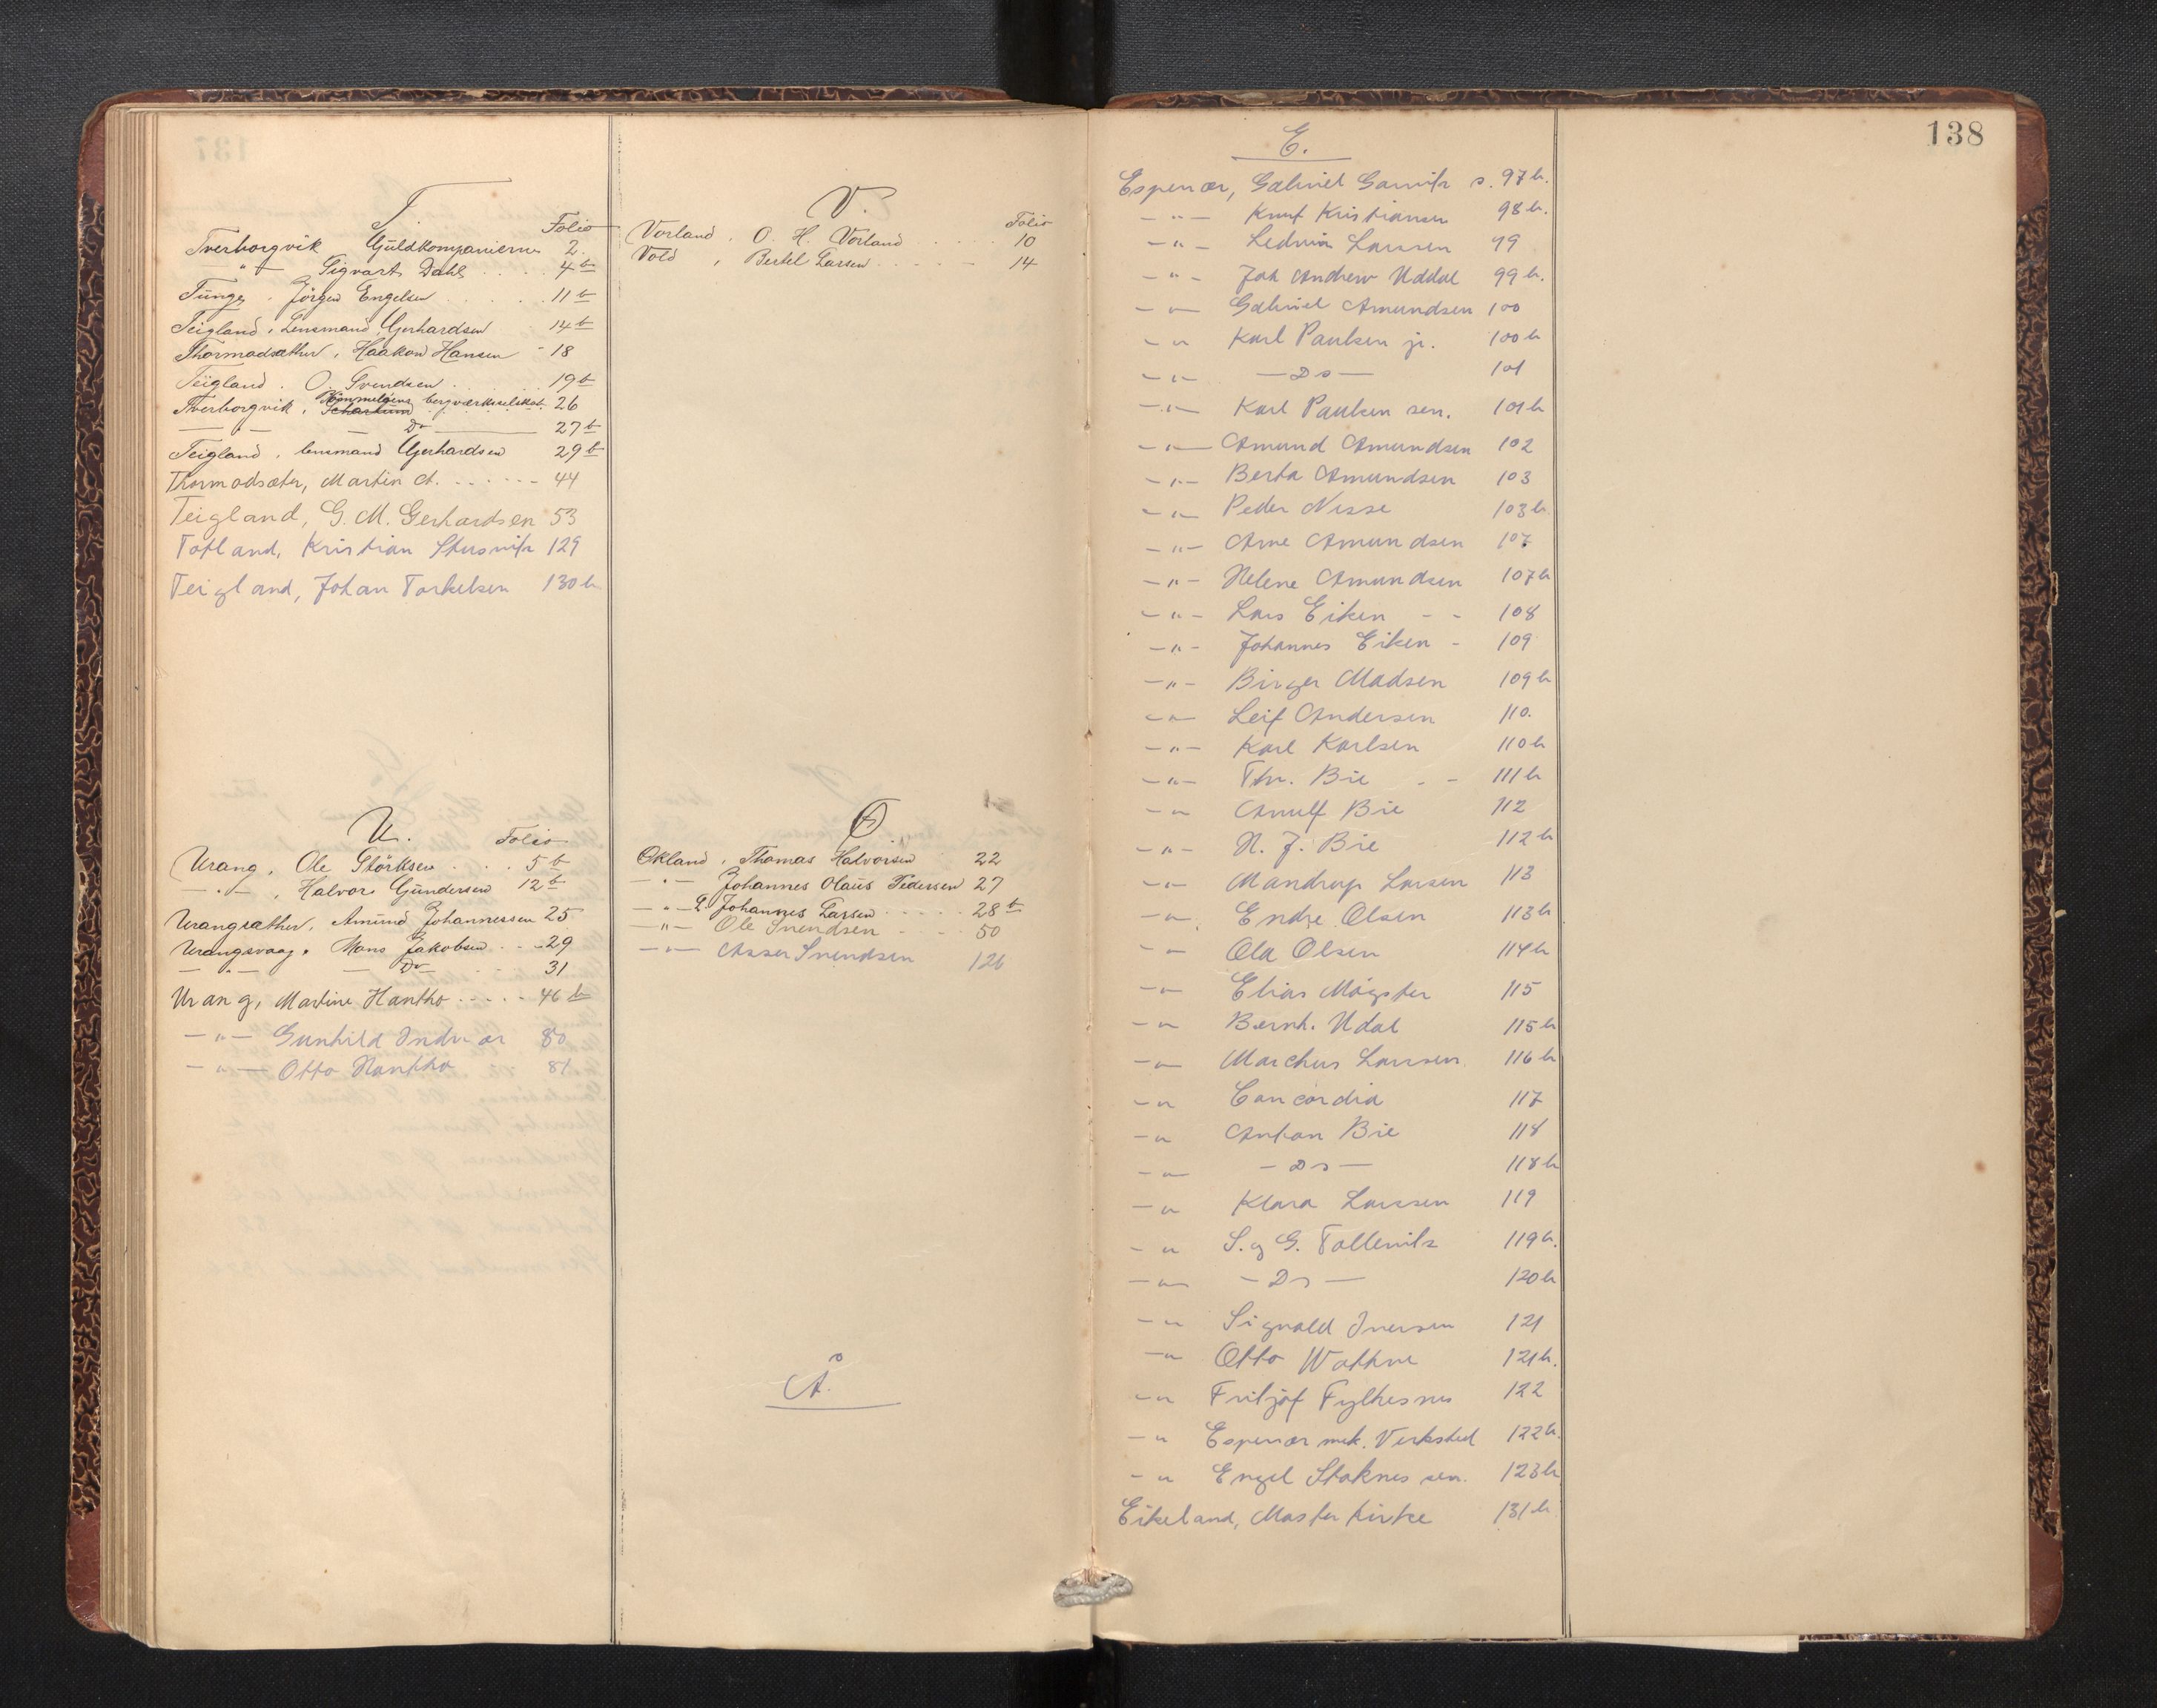 T.
Folio
Tverborgvik Guldkompanierne 2.
" Sigvart Dahl 4 b
Tunge. Jörgen Engelsen 11 b
Teigland. Lensmand Gerhardsen 14 b
Thormodsæther, Haakon Hansen - 18
Teigland. O. Svendsen 19 b
Tverborgvik, bergverksselskab. 26
— " — Do 27 b
Teigland. lensmand Gerhardsen 29 b
Thormodsæter, Martin A. - - - - - - 44
Teigland, G. M. Gerhardsen 53
Totland, Kristian 129
Teigland, Johan Torkelsen 130 b
U.
Folio
Urang. Ole Störksen 5 b
— " — , Halvor Gundersen 12 b
Urangsæther, Amund Johannessen 25
Urangsvaag. Mons Jakobsen 29
— " — Do 31
Urang, Martine Hantho 46 b
— " — Gunhild Indvær 80
— " — Otto Hantho 81
V.
Folio
Vorland. O. H. Vorland 10
Vold, Bertel Larsen 14
Ø
Økland, Thomas Halvorsen 22
— " — Johannes Olaus Pedersen 27
— " — L. Johannes Larsen 28 b
— " — Ole Svendsen 50
— " — Asser Svendsen 126
Å.
138
E.
Espevær, Gabriel s. 97 b.
— " — Knut Kristiansen 98 b.
— " — Ledvin Larssen 99
— " — Joh Andrew Uddal 99 b.
— " — Gabriel Amundsen 100
— " — Karl Paulsen jr. 100 b
— " — — Do — 101
— " — Karl Paulsen sen. 101 b
— " — Amund Amundsen 102
— " — Berta Amundsen 103
— " — Peder Nesse 103 b
— " — Arne Amundsen 107
— " — Helene Amundsen 107 b
— " — Lars Eiken - - 108
— " — Johannes Eiken - 109
— " — Birger Madsen 109 b
— " — Leif Andersen 110.
— " — Karl Karlsen 110 b
— " — Thr. Bie - - 111 b
— " Arnulf Bie 112
— " — N. J. Bie 112 b
— " — Mandrup Larsen 113
— " — Endre Olsen 113 b
— " — Ola Olsen 114 b
— " — Elias Møgster 115
— " Bernh. Udal 115 b
— " — Marchus Larssen 116 b
— " Concordia 117
— " Anton Bie 118
— " — — Do — 118 b
— " Klara Larssen 119
— " S. og G. Tollevik 119 b.
— " — — Do — 120 b
— " Sigvald Iversen 121
— " Otto Wathne 121 b.
— " Fritjof Fylkesnes 122
— " Espevær mek. Verksted 122 b.
— " Engel Stoknes sen. 123 b
Eikeland, Moster kirke 131 b